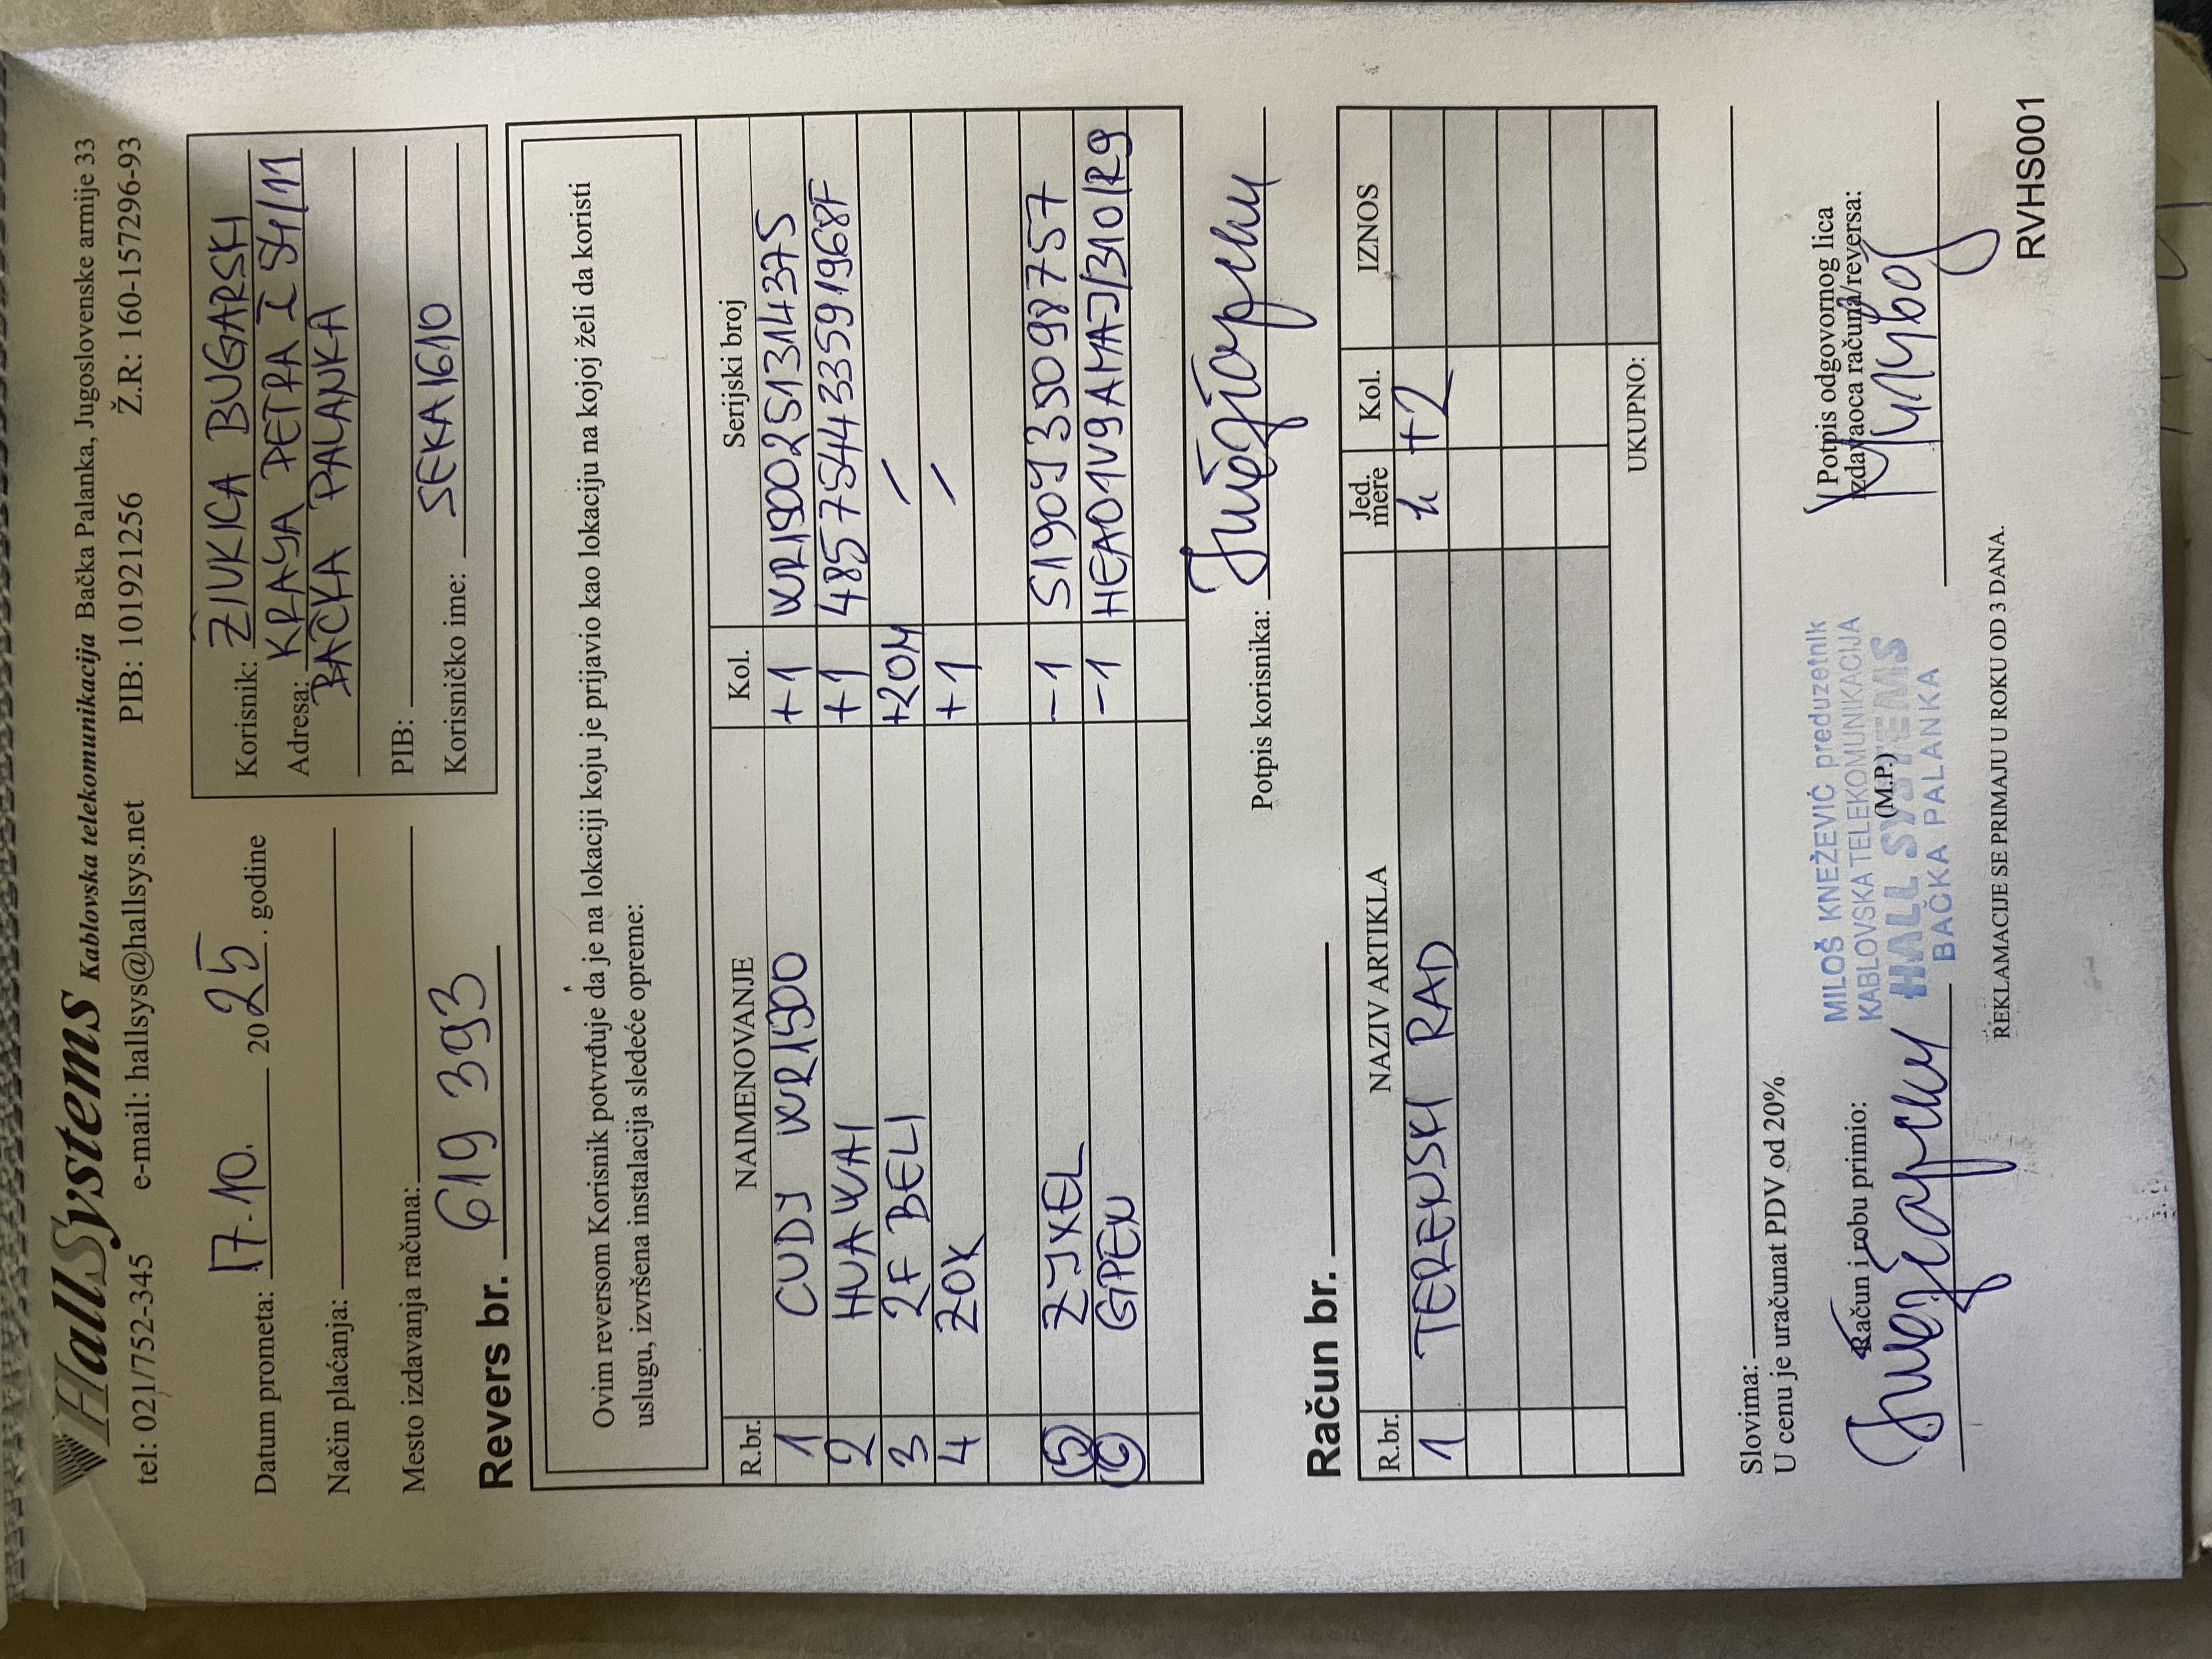 HallSystems Kablovska telekomunikacija Bačka Palanka, Jugoslovenske armije 33
tel: 021/752-345 e-mail: hallsys@hallsys.net PIB: 101921256 Ž.R: 160-157296-93
Datum prometa: 17.10. 2025. godine
Način plaćanja:
Mesto izdavanja računa:
Korisnik: ŽIVKICA BUGARSKI
Adresa: KRALJA PETRA I 54/11
BAČKA PALANKA
PIB:
Korisničko ime: SEKA1610
Revers br. 619 393
Ovim reversom Korisnik potvrđuje da je na lokaciji koju je prijavio kao lokaciju na kojoj želi da koristi
uslugu, izvršena instalacija sledeće opreme:
R.br. NAIMENOVANJE Kol. Serijski broj
1 CUDY WR1500 +1 WR1500251314375
2 HUAWAI +1 485754433591968F
3 2F BELI +20M /
4 ZOK +1 /
5 ZYXEL -1 S190Y35098757
6 GPEN -1 HEA01V9AMAJ/310/R9
Potpis korisnika:
Račun br.
R.br. NAZIV ARTIKLA Jed. mere Kol. IZNOS
1 TERENSKI RAD h +2
UKUPNO:
Slovima:
U cenu je uračunat PDV od 20%
Račun i robu primio:
MILOŠ KNEŽEVIĆ preduzetnik
KABLOVSKA TELEKOMUNIKACIJA
(M.P.)
HALL SYSTEMS
BAČKA PALANKA
Potpis odgovornog lica
izdavaoca računa/reversa:
REKLAMACIJE SE PRIMAJU U ROKU OD 3 DANA.
RVHS001